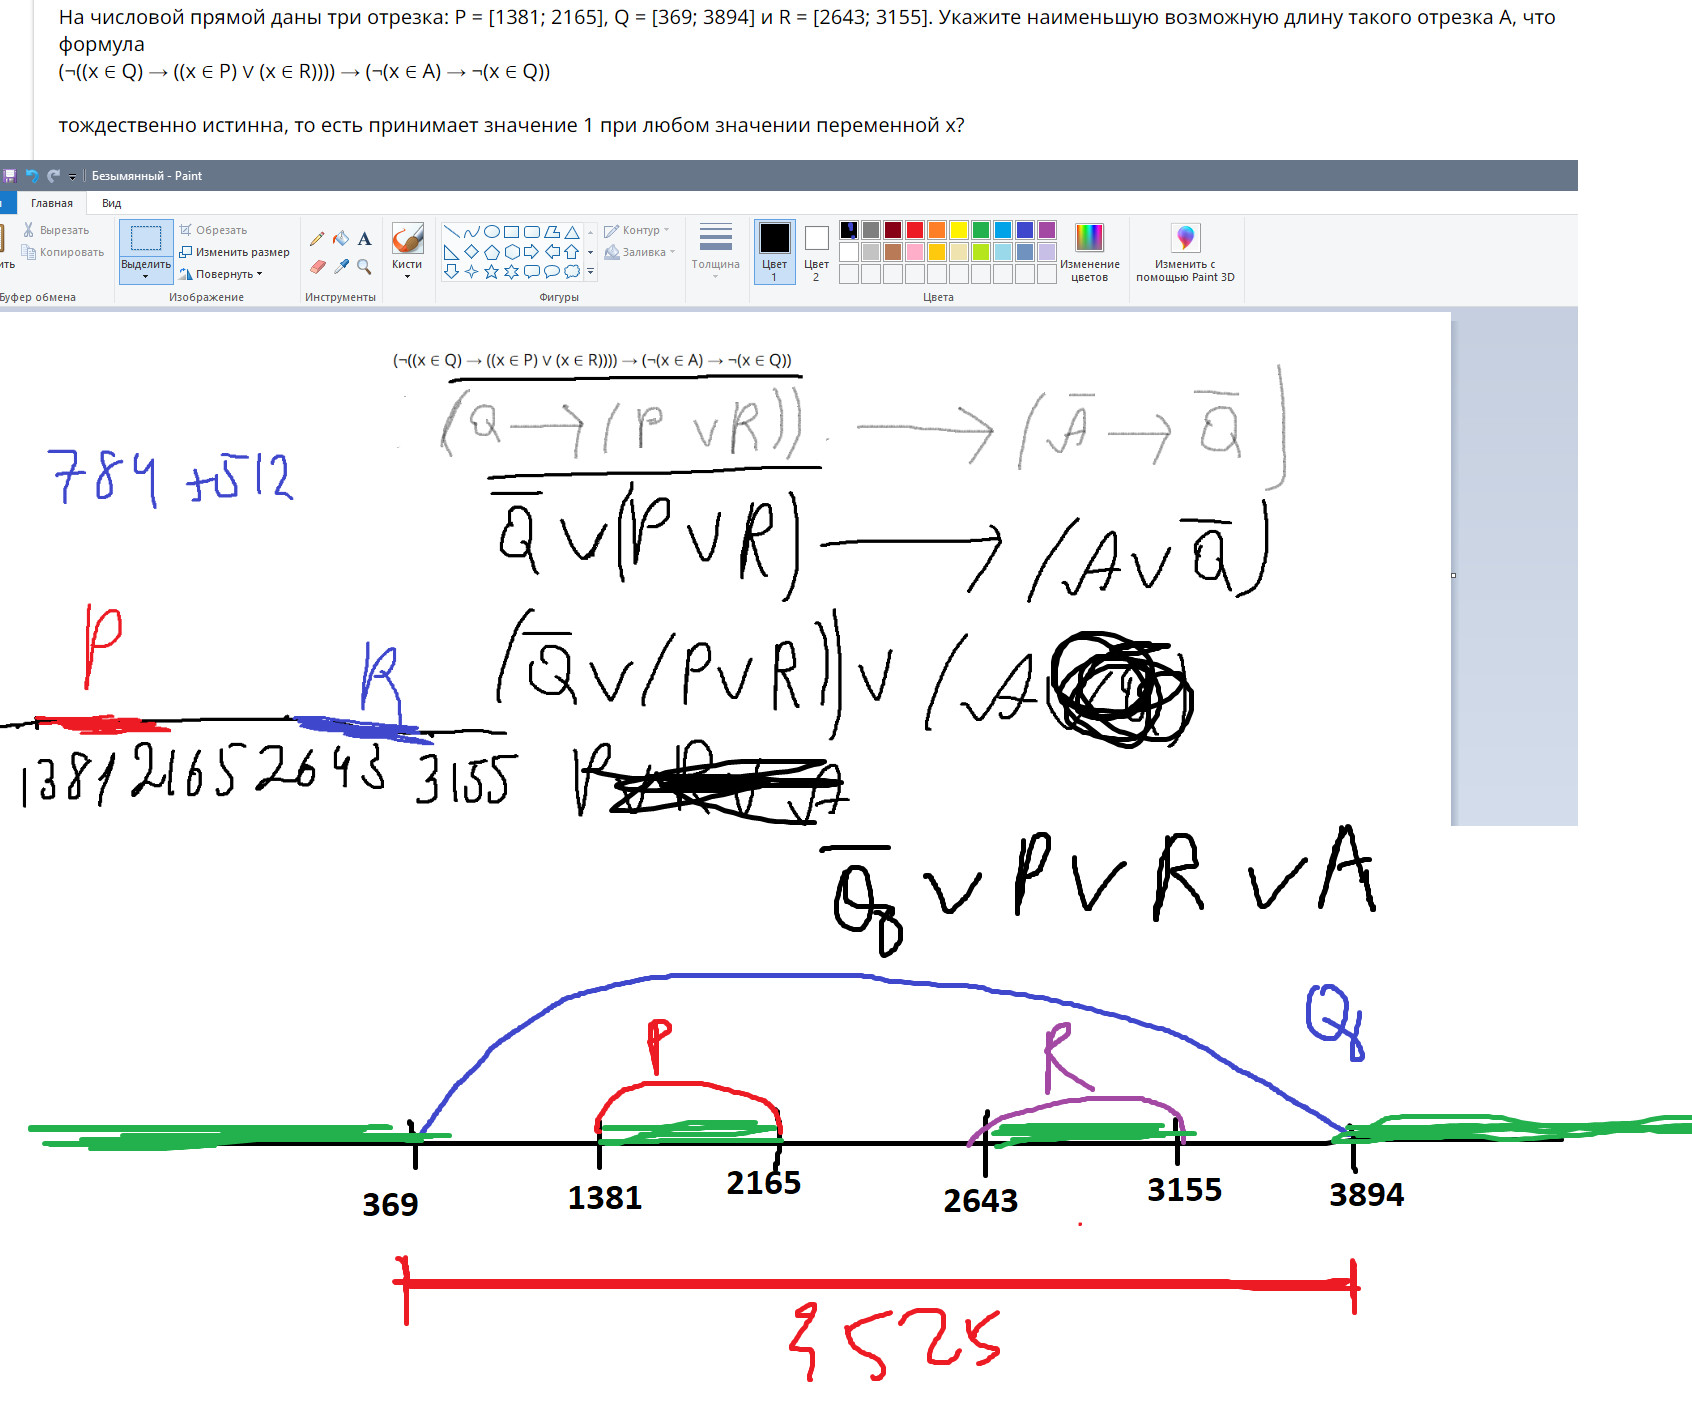 На числовой прямой даны три отрезка: P = [1381; 2165], Q = [369; 3894] и R = [2643; 3155]. Укажите наименьшую возможную длину такого отрезка A, что
формула
(¬((x ∈ Q) → ((x ∈ P) ∨ (x ∈ R)))) → (¬(x ∈ A) → ¬(x ∈ Q))
тождественно истинна, то есть принимает значение 1 при любом значении переменной x?
Безымянный - Paint
Главная Вид
Вырезать
Копировать
Буфер обмена
Выделить
Обрезать
Изменить размер
Повернуть
Изображение
A
Инструменты
Кисти
Контур
Заливка
Фигуры
Толщина
Цвет 1
Цвет 2
Изменение цветов
Цвета
Изменить с помощью Paint 3D
(¬((x ∈ Q) → ((x ∈ P) ∨ (x ∈ R)))) → (¬(x ∈ A) → ¬(x ∈ Q))
(Q → (P ∨ R)) → (A̅ → Q̅)
784 + 512
Q̅ ∨ (P ∨ R) → (A ∨ Q̅)
P
R
(Q̅ ∨ (P ∨ R)) ∨ (A
1381 2165 2643 3155
Q̅ ∨ P ∨ R ∨ A
Q
P
R
369
1381
2165
2643
3155
3894
3525